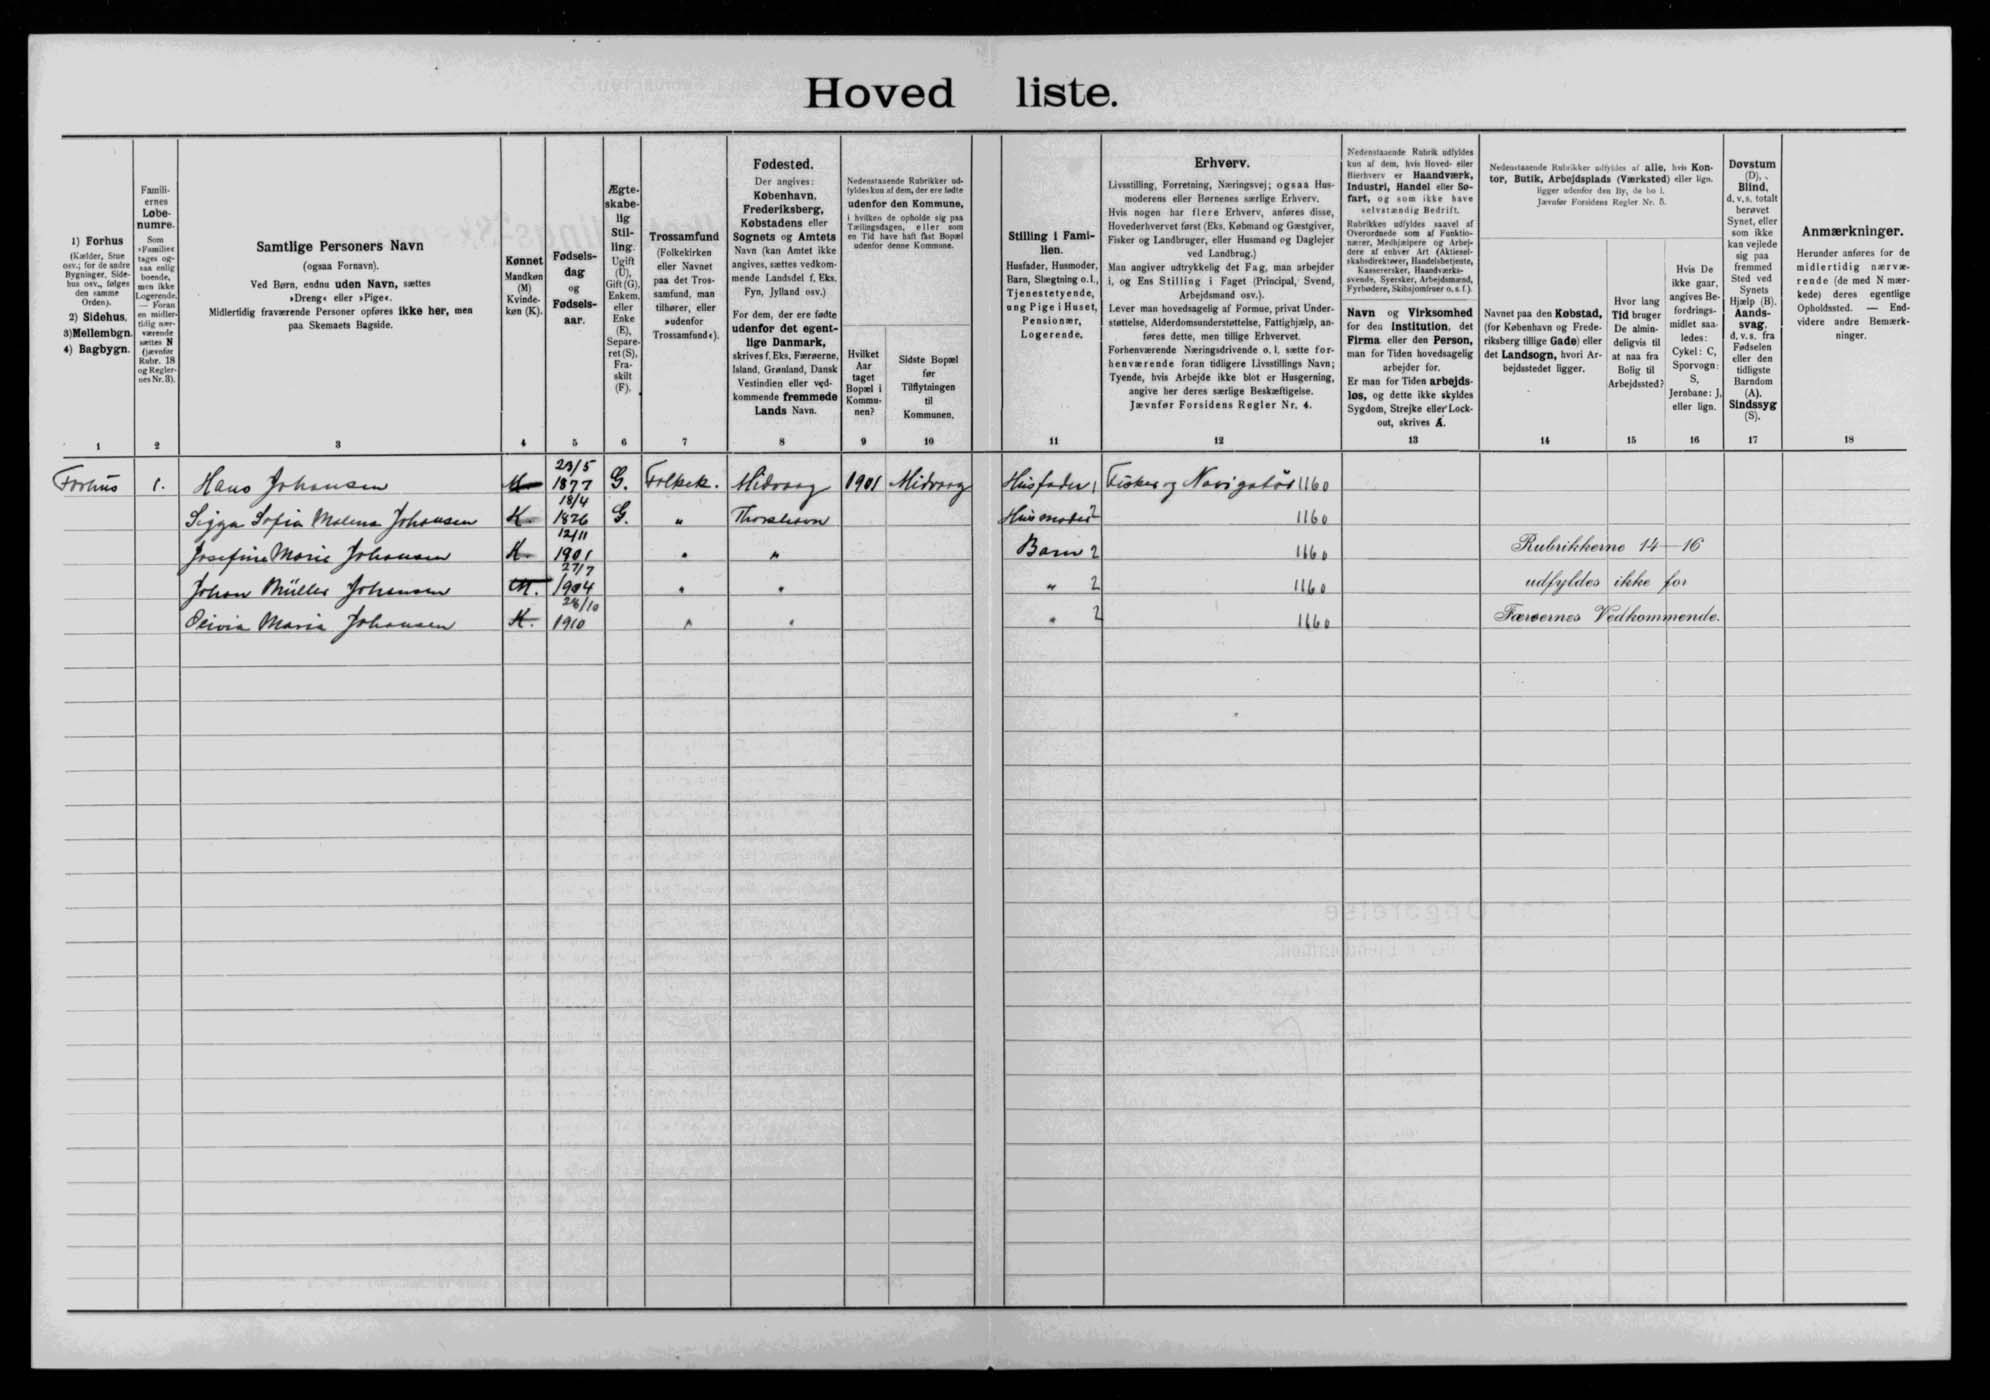 Hoved liste.
1) Forhus
(Kælder, Stue
osv.; for de andre
Bygninger, Side-
hus osv., følges
den samme
Orden).
2) Sidehus,
3) Mellembgn.
4) Bagbygn.
Famili-
ernes
Løbe-
numre.
Som
»Familie«
tages og-
saa enlig
boende,
men ikke
Logerende.
— Foran
en midler-
tidig nær-
værende
sættes N
(jævnfør
Rubr. 18
og Regler-
nes Nr. 3).
Samtlige Personers Navn
(ogsaa Fornavn).
Ved Børn, endnu uden Navn, sættes
»Dreng« eller »Pige«.
Midlertidig fraværende Personer opføres ikke her, men
paa Skemaets Bagside.
Kønnet
Mandkøn
(M)
Kvinde-
køn (K).
Fødsels-
dag
og
Fødsels-
aar.
Ægte-
skabe-
lig
Stil-
ling.
Ugift
(U),
Gift (G),
Enkem.
eller
Enke
(E),
Separe-
ret (S),
Fra-
skilt
(F).
Trossamfund
(Folkekirken
eller Navnet
paa det Tros-
samfund, man
tilhører, eller
»udenfor
Trossamfund«).
Fødested.
Der angives:
København,
Frederiksberg,
Købstadens eller
Sognets og Amtets
Navn (kan Amtet ikke
angives, sættes vedkom-
mende Landsdel f. Eks.
Fyn, Jylland osv.)
For dem, der ere fødte
udenfor det egent-
lige Danmark,
skrives f. Eks. Færøerne,
Island, Grønland, Dansk
Vestindien eller ved-
kommende fremmede
Lands Navn.
Nedenstaaende Rubrikker ud-
fyldes kun af dem, der ere fødte
udenfor den Kommune,
i hvilken de opholde sig paa
Tællingsdagen, eller som
en Tid have haft fast Bopæl
udenfor denne Kommune.
Hvilket
Aar
taget
Bopæl i
Kommu-
nen?
Sidste Bopæl
før
Tilflytningen
til
Kommunen.
Stilling i Fami-
lien.
Husfader, Husmoder,
Barn, Slægtning o. l.,
Tjenestetyende,
ung Pige i Huset,
Pensionær,
Logerende.
Erhverv.
Livsstilling, Forretning, Næringsvej; ogsaa Hus-
moderens eller Børnenes særlige Erhverv.
Hvis nogen har flere Erhverv, anføres disse,
Hovederhvervet først (Eks. Købmand og Gæstgiver,
Fisker og Landbruger, eller Husmand og Daglejer
ved Landbrug.)
Man angiver udtrykkelig det Fag, man arbejder
i, og Ens Stilling i Faget (Principal, Svend,
Arbejdsmand osv.).
Lever man hovedsagelig af Formue, privat Under-
støttelse, Alderdomsunderstøttelse, Fattighjælp, an-
føres dette, men tillige Erhvervet.
Forhenværende Næringsdrivende o. l. sætte for-
henværende foran tidligere Livsstillings Navn;
Tyende, hvis Arbejde ikke blot er Husgerning,
angive her deres særlige Beskæftigelse.
Jævnfør Forsidens Regler Nr. 4.
Nedenstaaende Rubrik udfyldes
kun af dem, hvis Hoved- eller
Bierhverv er Haandværk,
Industri, Handel eller Sø-
fart, og som ikke have
selvstændig Bedrift.
Rubrikken udfyldes saavel af
Overordnede som af Funktio-
nærer, Medhjælpere og Arbej-
dere af enhver Art (Aktiesel-
skabsdirektører, Handelsbetjente,
Kassererske, Haandværks-
svende, Syersker, Arbejdsmænd,
Fyrbødere, Skibsjomfruer o. s. f.).
Navn og Virksomhed
for den Institution, det
Firma eller den Person,
man for Tiden hovedsagelig
arbejder for.
Er man for Tiden arbejds-
løs, og dette ikke skyldes
Sygdom, Strejke eller Lock-
out, skrives A.
Nedenstaaende Rubrikker udfyldes af alle, hvis Kon-
tor, Butik, Arbejdsplads (Værksted) eller lign.
ligger udenfor den By, de bo i.
Jævnfør Forsidens Regler Nr. 5.
Navnet paa den Købstad,
(for København og Frede-
riksberg tillige Gade) eller
det Landsogn, hvori Ar-
bejdsstedet ligger.
Hvor lang
Tid bruger
De almin-
deligvis til
at naa fra
Bolig til
Arbejdssted?
Hvis De
ikke gaar,
angives Be-
fordrings-
midlet saa-
ledes:
Cykel: C,
Sporvogn:
S,
Jernbane: J,
eller lign.
Døvstum
(D),
Blind,
d. v. s. totalt
berøvet
Synet, eller
som ikke
kan vejlede
sig paa
fremmed
Sted ved
Synets
Hjælp (B).
Aands-
svag,
d. v. s. fra
Fødselen
eller den
tidligste
Barndom
(A).
Sindssyg
(S).
Anmærkninger.
Herunder anføres for de
midlertidig nærvæ-
rende (de med N mær-
kede) deres egentlige
Opholdssted. — End-
videre andre Bemærk-
ninger.
1 2 3 4 5 6 7 8 9 10 11 12 13 14 15 16 17 18
Forhus 1. Hans Johansen M 23/5 1877 G. Folkek. Midvaag 1901 Midvaag Husfader 1 Fisker og Navigatør 1160
Sigga Sofia Malena Johansen K. 18/4 1876 G. " Thorshavn Husmoder 2 1160
Josefine Marie Johansen K. 12/11 1901 " " Barn 2 1160 Rubrikkerne 14-16
Johan Müller Johansen M. 27/7 1904 " " " 2 1160 udfyldes ikke for
Olivia Maria Johansen K. 28/10 1910 " " " 2 1160 Færøernes Vedkommende.